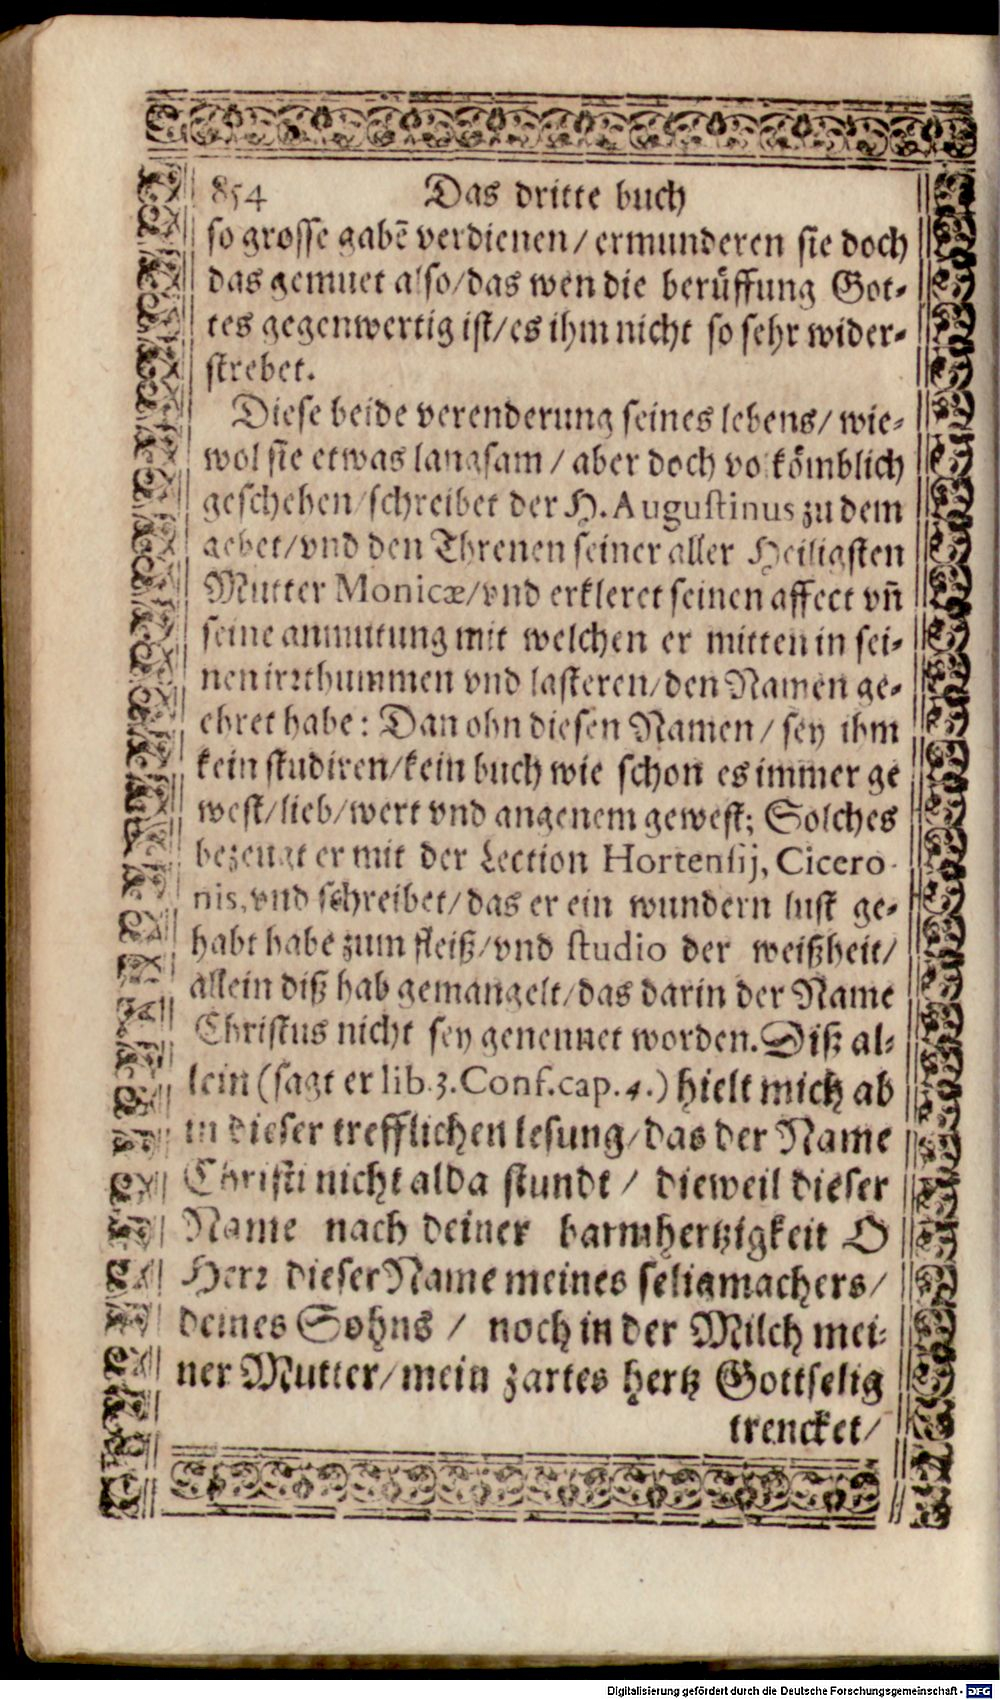 854 Das dritte buch
so grosse gabē verdienen/ ermunderen sie doch
das gemuet also/das wen die berüffung Got-
tes gegenwertig ist/es ihm nicht so sehr wider-
strebet.
Diese beide verenderung seines lebens/ wie-
wol sie etwas langsam / aber doch volkömblich
geschehen/schreibet der H. Augustinus zu dem
gebet/vnd den Threnen seiner aller Heiligsten
Mutter Monicæ/vnd erkleret seinen affect vñ
seine anmutung mit welchen er mitten in sei-
nen irrthummen vnd lasteren/den Namen ge-
ehret habe: Dan ohn diesen Namen / sey ihm
kein studiren/kein buch wie schon es immer ge
west/lieb/wert vnd angenem gewest; Solches
bezeugt er mit der Lection Hortensij, Cicero-
nis, vnd schreibet/das er ein wundern lust ge-
habt habe zum fleiß/vnd studio der weißheit/
allein diß hab gemangelt/das darin der Name
Christus nicht sey genennet worden. Diß al-
lein (sagt er lib. 3. Conf. cap. 4.) hielt mich ab
in dieser trefflichen lesung/das der Name
Christi nicht alda stundt / dieweil dieser
Name nach deiner barmhertzigkeit O
Herr dieser Name meines seligmachers/
deines Sohns / noch in der Milch mei-
ner Mutter/mein zartes hertz Gottselig
trencket/
Digitalisierung gefördert durch die Deutsche Forschungsgemeinschaft - DFG